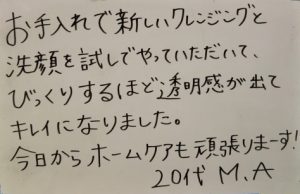 お手入れで新しいクレンジングと
洗顔を試しでやっていただいて、
びっくりするほど透明感が出て
キレイになりました。
今日からホームケアも頑張りまーす!
20代 M.A